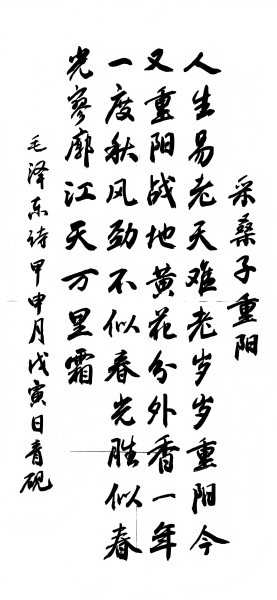 采桑子重阳
人生易老天难老岁岁重阳今
又重阳战地黄花分外香一年
一度秋风劲不似春光胜似春
光寥廓江天万里霜
毛泽东诗甲申月戊寅日青砚